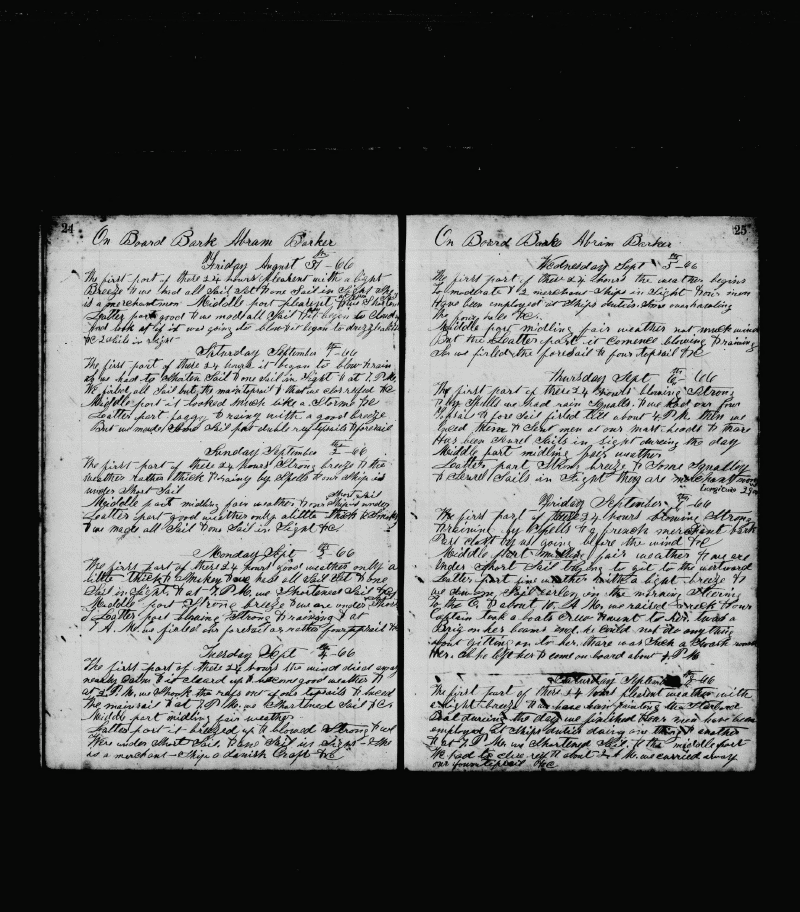 24
On Board Bark Abram Barker
Friday August 31th - 66
The first part of these 24 hours pleasent with a light
Breeze & we had all Sail Set & one Sail in Sight & she
is a merchantman Middle part pleasent
Latter part good & we mad all Sail & it began to Cloud
and look as if it was going to blow it began to drizzle
&c Sails in Sight
Saturday September 1th - 66
The first part of these 24 hours it began to blow & rain
we had to Shorten Sail & one Sail in Sight & at 7 P.M.
We firled all Sail but the maintopsail & that we close refed &c
Middle part it looked much like a Storm &c
Latter part foggy & rainy with a good breeze
But we made Some Sail put duble reef topsails & foresail
Sunday September 2th - 66
The first part of these 24 hours Strong breeze & the
weather rather thick & rainy by Spells & our Ship is
under Short Sail
Middle part midling fair weather & our Ship is under
Short Sail
Latter part good weather only a little thick & Smoky
& we made all Sail & one Sail in Sight &c
Monday Sept 3th - 66
The first part of these 24 hours good weather only a
little thick & Smokey & we had all Sail Set & one
Sail in Sight & at 7 P.M. we Shortened Sail &c
Middle part Strong breeze & we are under Short
Latter part blowing Strong & raining & at
7 A.M. we firled our foresail fourtopsail &c
Tuesday Sept 4th - 66
The first part of these 24 hours the wind died away
nearly Calm & it cleared up & we come good weather &
at 2 P.M. we Shook the refs out of our topsails & loosed
the mainsail & at 7 P.M. we Shortened Sail &c
Middle part midling fair weather
Latter part it breezed up & blowed Strong & we
Were under Short Sail & one Sail in Sight & She
is a merchant Ship a danish Craft &c
25
On Board Bark Abram Barker
Wednesday Sept 5th - 66
The first part of these 24 hours the weather begins
To moderate & 2 merchant Ships in Sight & our men
Have been employed at Ships duties Some overhauling
the &c
Middle part midling fair weather not much wind
But the Latter part it comence blowing & raining
So we firled the foresail & four topsail &c
Thursday Sept 6th - 66
The first part of these 24 hours blowing Strong
& by Spells we had rain Squalls & we had our four
topsail & fore sail firled till about 4 P.M. then we
loosed them & Sent men at our mast heads & thare
Has been Several Sails in Sight during the day
Middle part midling fair weather
Latter part Strong breeze & Some Squally
& Several Sails in Sight they are merchantmen
Longitude 29
Friday September 7th - 66
The first part of these 24 hours blowing Strong
& raining by Spells & a french merchant bark
Past close by us going before the wind &c
Middle part midling fair weather & we are
under Short Sail trying to git to the westward
Latter part fine weather with a light breeze &
we Sail early in the morning Steering
to the & about 10 A.M. we raised a wreck & our
Captain took a boats Crew & went to her twas a
Brig on her beams end & he could not do any thing
about gitting on to her there was Such a Swash round
Her. So he left her & come on board about 4 P.M.
Saturday September 8th - 66
The first part of these 24 hours pleasent weather with
a Light breeze & we have been painting the Starbord
Boat during the day we finished & our men have been
employed at Ships duties doing one thing & another
& at 7 P.M. we Shortened Sail & the middle part
We had to close reef & about A.M. we carried away
our four topsail &c